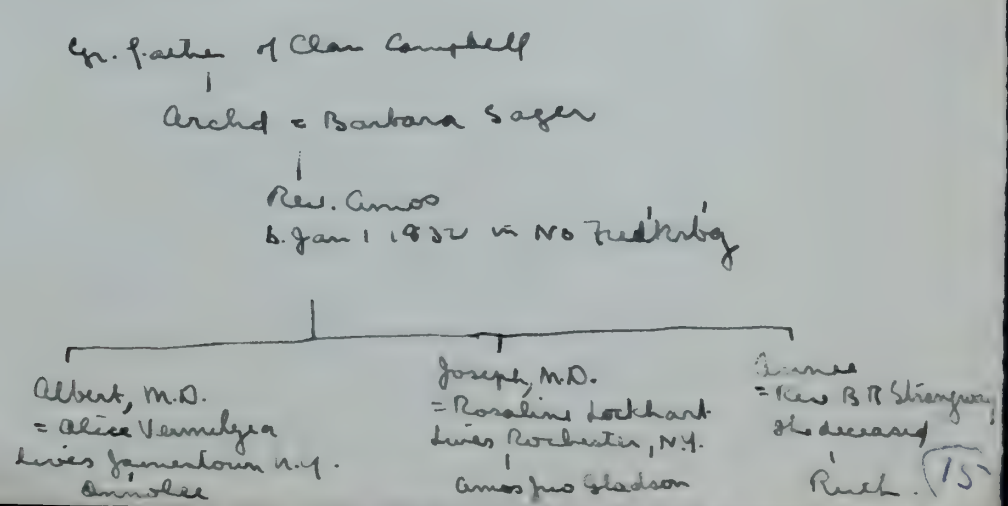 Gr. father of Clan Campbell
Archd = Barbara Sager
Rev. Amos
b. Jan 1 1832 in No Fred'ksb'g
Albert, M.D.
= Alice
Lives Jamestown N.Y.
Joseph, M.D.
= Rosaline Lockhart
Lives Rochester, N.Y.
Amos Jno Gladson
= Rev B R
She deceased
Ruth.
15